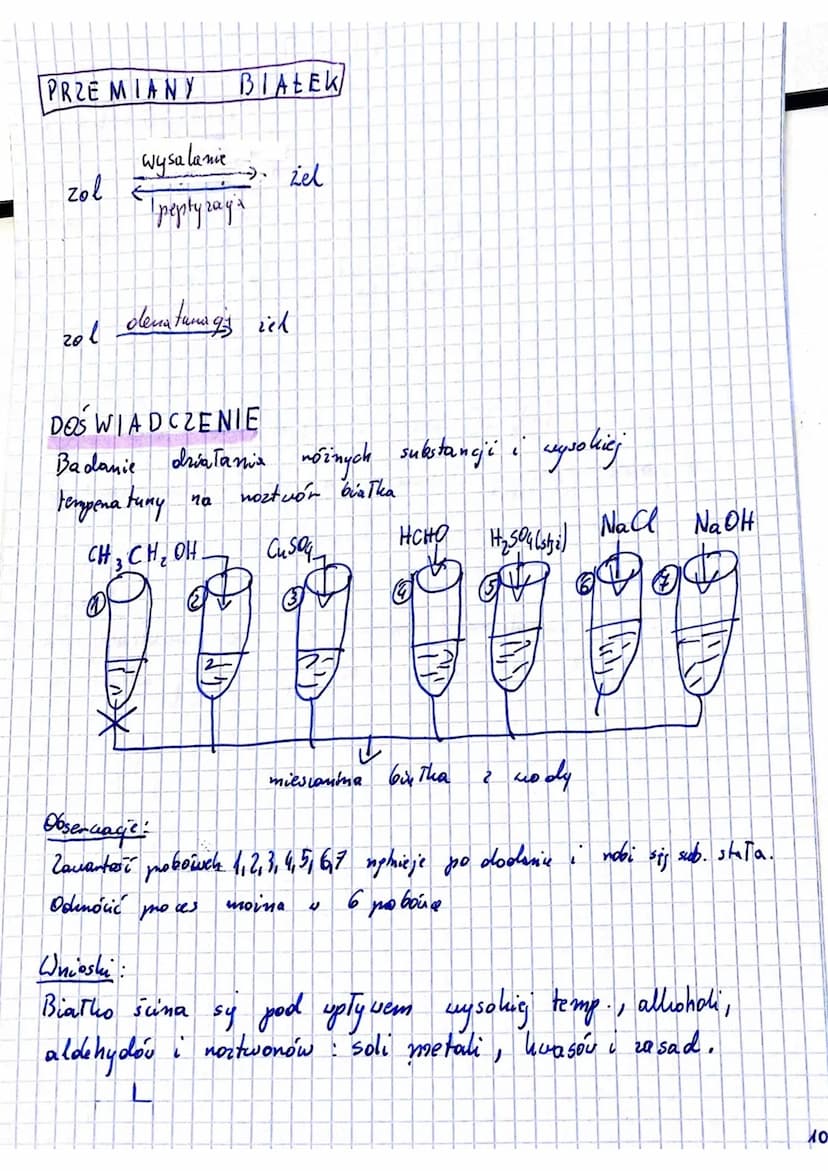 PRZEMIANY BIAŁEK
wysalanie
zol żel
peptyzacja
denaturacja
zol żel
DOŚWIADCZENIE
Badanie działania różnych substancji i wysokiej
temperatury na roztwór białka
CH₃CH₂OH CuSO₄ HCHO H₂SO₄(stęż) NaCl NaOH
1 2 3 4 5 6 7
mieszanina białka z wody
Obserwacje:
Zawartość probówek 1,2,3,4,5,6,7 po dodanie i robi się sub. stała.
Odwrócić proces można w 6 probówce
Wnioski:
Białko ścina się pod wpływem wysokiej temp., alkoholi,
aldehydów i roztworów : soli metali, kwasów i zasad.
10